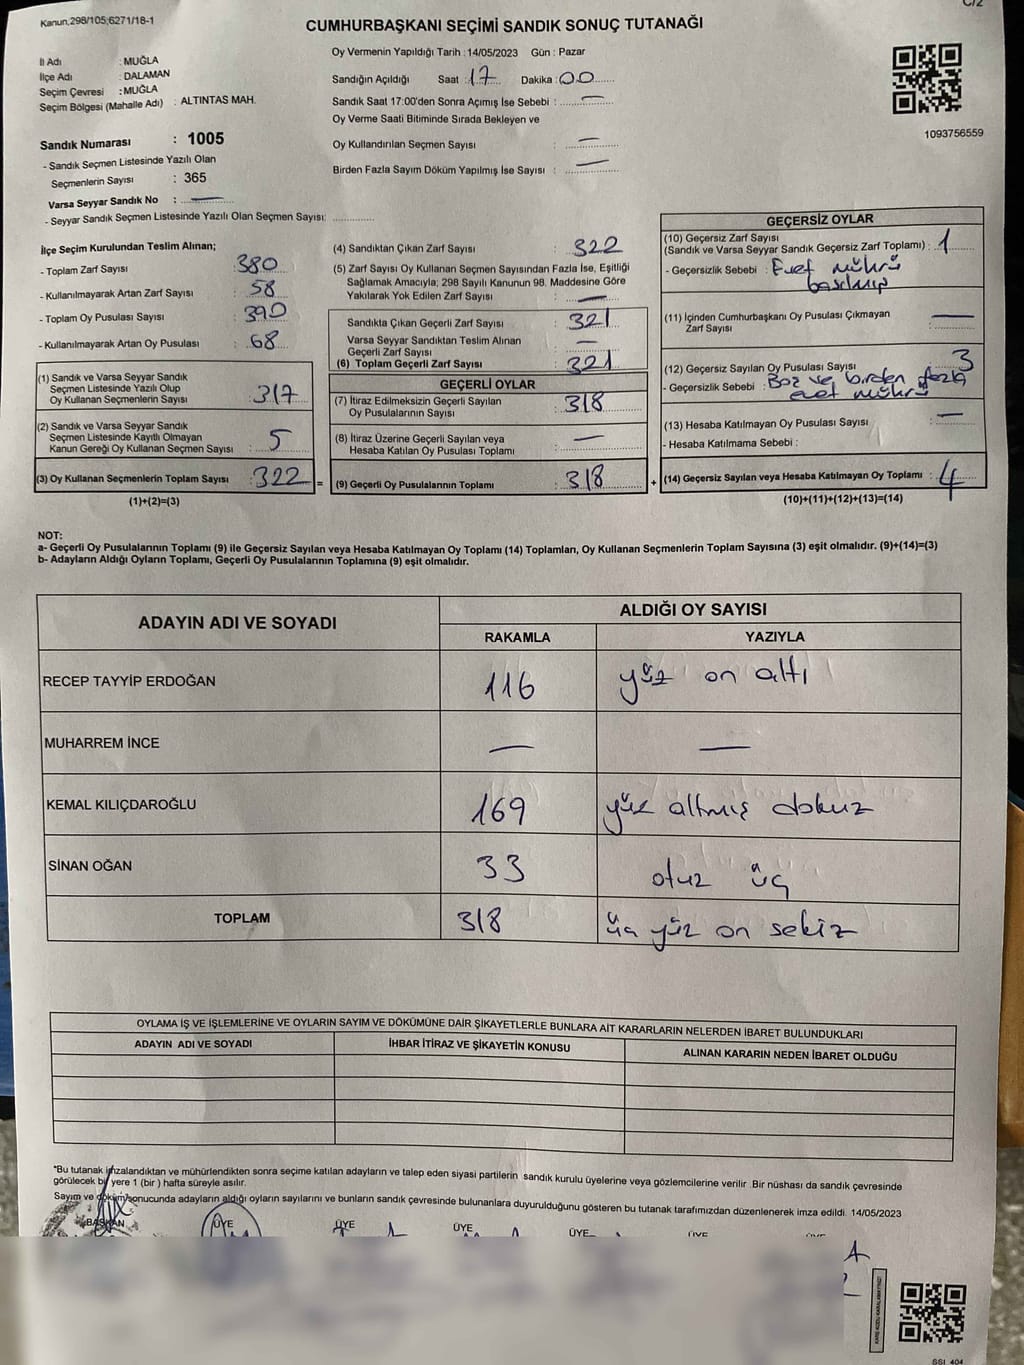 C/2
Kanun,298/105;6271/18-1
CUMHURBAŞKANI SEÇİMİ SANDIK SONUÇ TUTANAĞI
İl Adı : MUĞLA
İlçe Adı : DALAMAN
Seçim Çevresi : MUĞLA
Seçim Bölgesi (Mahalle Adı) : ALTINTAS MAH.
Oy Vermenin Yapıldığı Tarih : 14/05/2023 Gün : Pazar
Sandığın Açıldığı Saat : 17 Dakika : 00
Sandık Saat 17:00'den Sonra Açımış İse Sebebi : —
Oy Verme Saati Bitiminde Sırada Bekleyen ve
Oy Kullandırılan Seçmen Sayısı : —
Birden Fazla Sayım Döküm Yapılmış İse Sayısı : —
1093756559
Sandık Numarası : 1005
- Sandık Seçmen Listesinde Yazılı Olan
Seçmenlerin Sayısı : 365
Varsa Seyyar Sandık No : —
- Seyyar Sandık Seçmen Listesinde Yazılı Olan Seçmen Sayısı:
İlçe Seçim Kurulundan Teslim Alınan;
- Toplam Zarf Sayısı : 380
- Kullanılmayarak Artan Zarf Sayısı : 58
- Toplam Oy Pusulası Sayısı : 390
- Kullanılmayarak Artan Oy Pusulası : 68
(1) Sandık ve Varsa Seyyar Sandık
Seçmen Listesinde Yazılı Olup
Oy Kullanan Seçmenlerin Sayısı : 317
(2) Sandık ve Varsa Seyyar Sandık
Seçmen Listesinde Kayıtlı Olmayan
Kanun Gereği Oy Kullanan Seçmen Sayısı : 5
(3) Oy Kullanan Seçmenlerin Toplam Sayısı : 322 =
(1)+(2)=(3)
(4) Sandıktan Çıkan Zarf Sayısı : 322
(5) Zarf Sayısı Oy Kullanan Seçmen Sayısından Fazla İse, Eşitliği
Sağlamak Amacıyla; 298 Sayılı Kanunun 98. Maddesine Göre
Yakılarak Yok Edilen Zarf Sayısı : —
Sandıkta Çıkan Geçerli Zarf Sayısı : 321
Varsa Seyyar Sandıktan Teslim Alınan
Geçerli Zarf Sayısı : —
(6) Toplam Geçerli Zarf Sayısı : 321
GEÇERLİ OYLAR
(7) İtiraz Edilmeksizin Geçerli Sayılan
Oy Pusulalarının Sayısı : 318
(8) İtiraz Üzerine Geçerli Sayılan veya
Hesaba Katılan Oy Pusulası Toplamı : —
(9) Geçerli Oy Pusulalarının Toplamı : 318 +
GEÇERSİZ OYLAR
(10) Geçersiz Zarf Sayısı
(Sandık ve Varsa Seyyar Sandık Geçersiz Zarf Toplamı) : 1
- Geçersizlik Sebebi : Evet mührü
basılmış
(11) İçinden Cumhurbaşkanı Oy Pusulası Çıkmayan
Zarf Sayısı : —
(12) Geçersiz Sayılan Oy Pusulası Sayısı : 3
- Geçersizlik Sebebi : Boz ve birden fazla
evet mührü
(13) Hesaba Katılmayan Oy Pusulası Sayısı : —
- Hesaba Katılmama Sebebi :
(14) Geçersiz Sayılan veya Hesaba Katılmayan Oy Toplamı : 4
(10)+(11)+(12)+(13)=(14)
NOT:
a- Geçerli Oy Pusulalarının Toplamı (9) ile Geçersiz Sayılan veya Hesaba Katılmayan Oy Toplamı (14) Toplamları, Oy Kullanan Seçmenlerin Toplam Sayısına (3) eşit olmalıdır. (9)+(14)=(3)
b- Adayların Aldığı Oyların Toplamı, Geçerli Oy Pusulalarının Toplamına (9) eşit olmalıdır.
ADAYIN ADI VE SOYADI ALDIĞI OY SAYISI
RAKAMLA YAZIYLA
RECEP TAYYİP ERDOĞAN 116 yüz on altı
MUHARREM İNCE — —
KEMAL KILIÇDAROĞLU 169 yüz altmış dokuz
SİNAN OĞAN 33 otuz üç
TOPLAM 318 üç yüz on sekiz
OYLAMA İŞ VE İŞLEMLERİNE VE OYLARIN SAYIM VE DÖKÜMÜNE DAİR ŞİKAYETLERLE BUNLARA AİT KARARLARIN NELERDEN İBARET BULUNDUKLARI
ADAYIN ADI VE SOYADI İHBAR İTİRAZ VE ŞİKAYETİN KONUSU ALINAN KARARIN NEDEN İBARET OLDUĞU
*Bu tutanak imzalandıktan ve mühürlendikten sonra seçime katılan adayların ve talep eden siyasi partilerin sandık kurulu üyelerine veya gözlemcilerine verilir .Bir nüshası da sandık çevresinde
görülecek bir yere 1 (bir ) hafta süreyle asılır.
Sayım ve döküm sonucunda adayların aldığı oyların sayılarını ve bunların sandık çevresinde bulunanlara duyurulduğunu gösteren bu tutanak tarafımızdan düzenlenerek imza edildi. 14/05/2023
BAŞKAN ÜYE ÜYE ÜYE ÜYE ÜYE
SSI_404